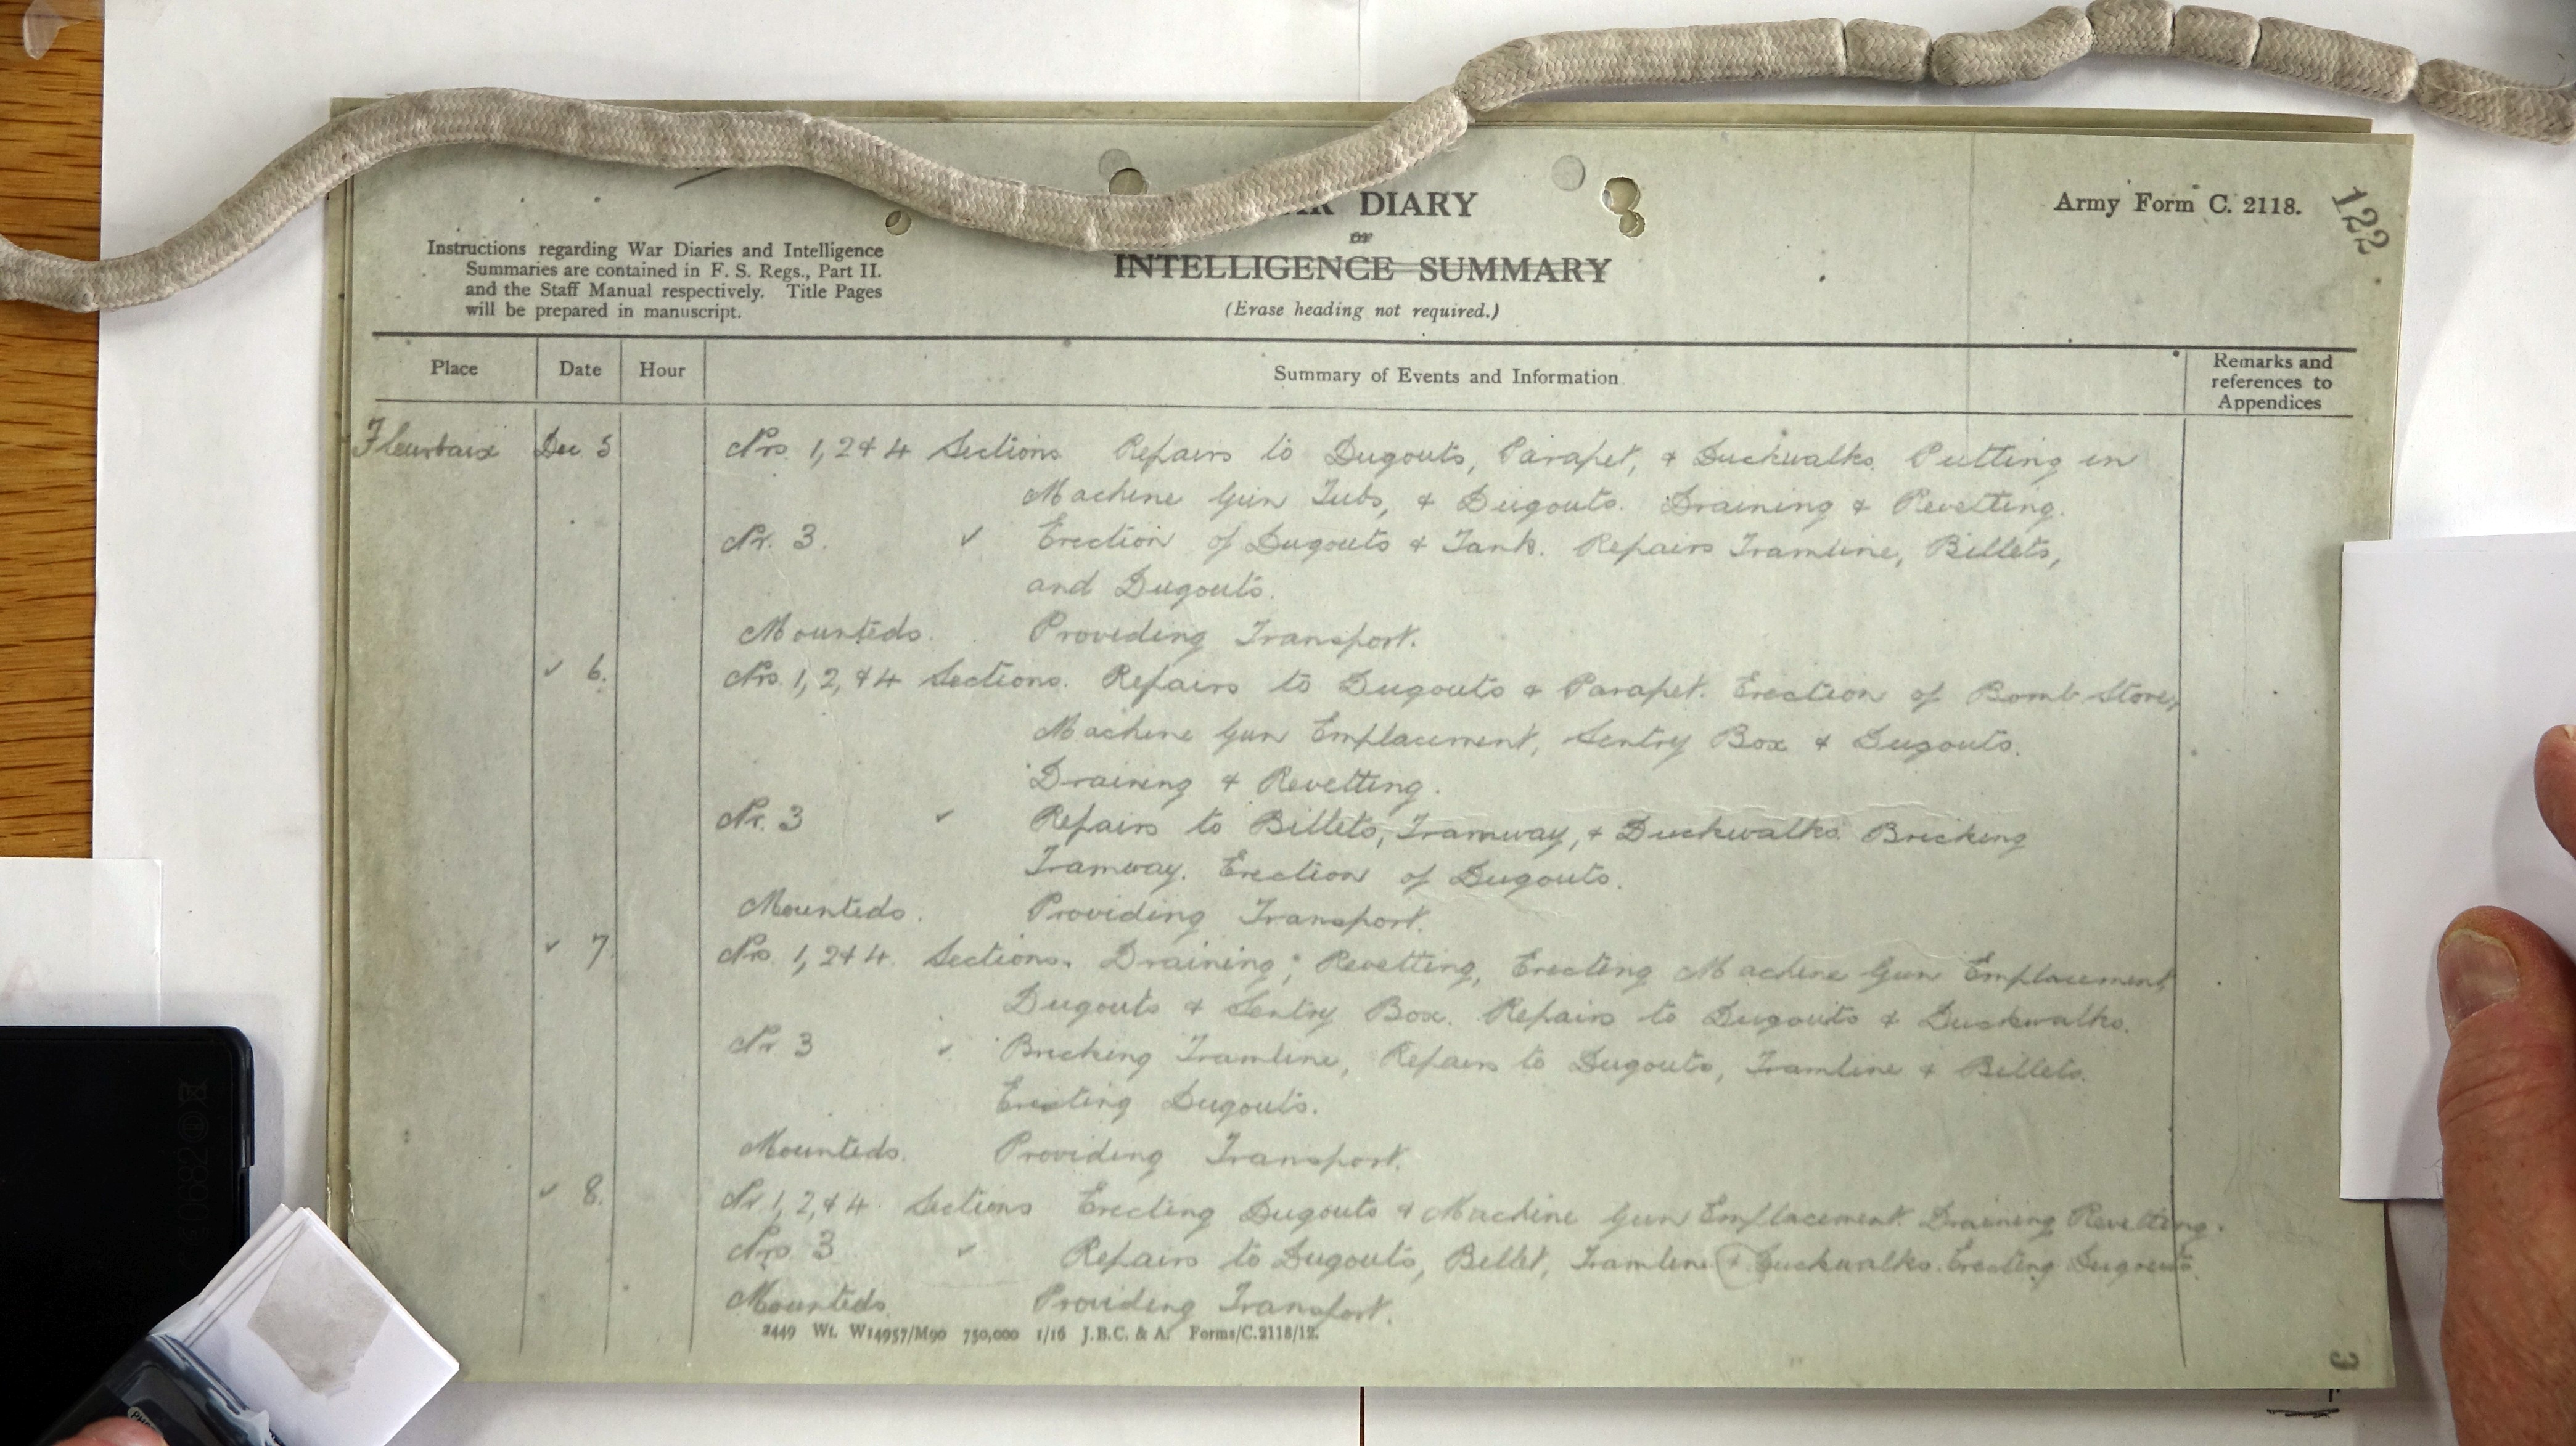 AR DIARY
Army Form C. 2118.
122
or
Instructions regarding War Diaries and Intelligence
Summaries are contained in F. S. Regs., Part II.
and the Staff Manual respectively. Title Pages
will be prepared in manuscript.
INTELLIGENCE SUMMARY
(Erase heading not required.)
Place Date Hour Summary of Events and Information Remarks and
references to
Appendices
Fleurbaix Dec 5 Nrs. 1, 2 & 4 Sections Repairs to Dugouts, Parapet, & Duckwalks. Putting in
Machine Gun Tubs, & Dugouts. Draining & Revetting.
Nr. 3. " Erection of Dugouts & Tank. Repairs Tramline, Billets,
and Dugouts.
Mounteds. Providing Transport.
" 6. Nrs. 1, 2, & 4 Sections. Repairs to Dugouts & Parapet. Erection of Bomb Store,
Machine Gun Emplacement, Sentry Box & Dugouts.
Draining & Revetting.
Nr. 3 " Repairs to Billets, Tramway, & Duckwalks. Bricking
Tramway. Erection of Dugouts.
Mounteds. Providing Transport.
" 7. Nrs. 1, 2 & 4. Sections. Draining, Revetting, Erecting Machine Gun Emplacement,
Dugouts & Sentry Box. Repairs to Dugouts & Duckwalks.
Nr 3 " Bricking Tramline, Repairs to Dugouts, Tramline & Billets.
Erecting Dugouts.
Mounteds. Providing Transport.
" 8. Nr. 1, 2, & 4. Sections Erecting Dugouts & Machine Gun Emplacement. Draining Revetting.
Nrs. 3 " Repairs to Dugouts, Billet, Tramline & Duckwalks. Erecting Dugouts.
Mounteds. Providing Transport.
2449 Wt. W14957/M90 750,000 1/16 J.B.C. & A. Forms/C.2118/12.
3